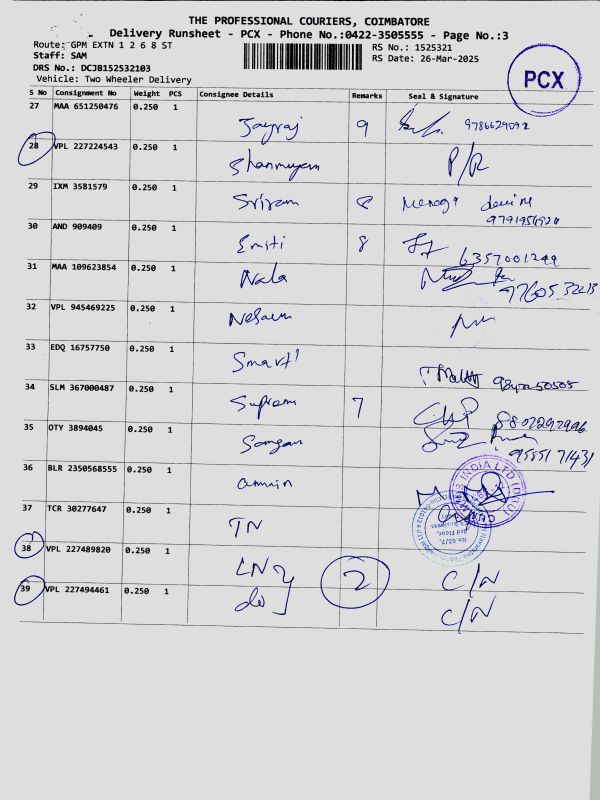 THE PROFESSIONAL COURIERS, COIMBATORE
Delivery Runsheet - PCX - Phone No.:0422-3505555 - Page No.:3
Route: GPM EXTN 1 2 6 8 ST
RS No.: 1525321
Staff: SAM
RS Date: 26-Mar-2025
DRS No.: DCJB152532103
Vehicle: Two Wheeler Delivery
PCX
S No Consignment No Weight PCS Consignee Details Remarks Seal & Signature
27 MAA 651250476 0.250 1 Jayraj 9 9786629092
28 VPL 227224543 0.250 1 Shanmugam P/R
29 IXM 3581579 0.250 1 Sriram 8
30 AND 909409 0.250 1 8 6357001249
31 MAA 109623854 0.250 1 Nala
32 VPL 945469225 0.250 1
33 EDQ 16757750 0.250 1 Smart
34 SLM 367000487 0.250 1 Suprem 7
35 OTY 3894045 0.250 1
36 BLR 2350568555 0.250 1
37 TCR 30277647 0.250 1 TN
38 VPL 227489820 0.250 1 LN 2 C/N
39 VPL 227494461 0.250 1 do C/N